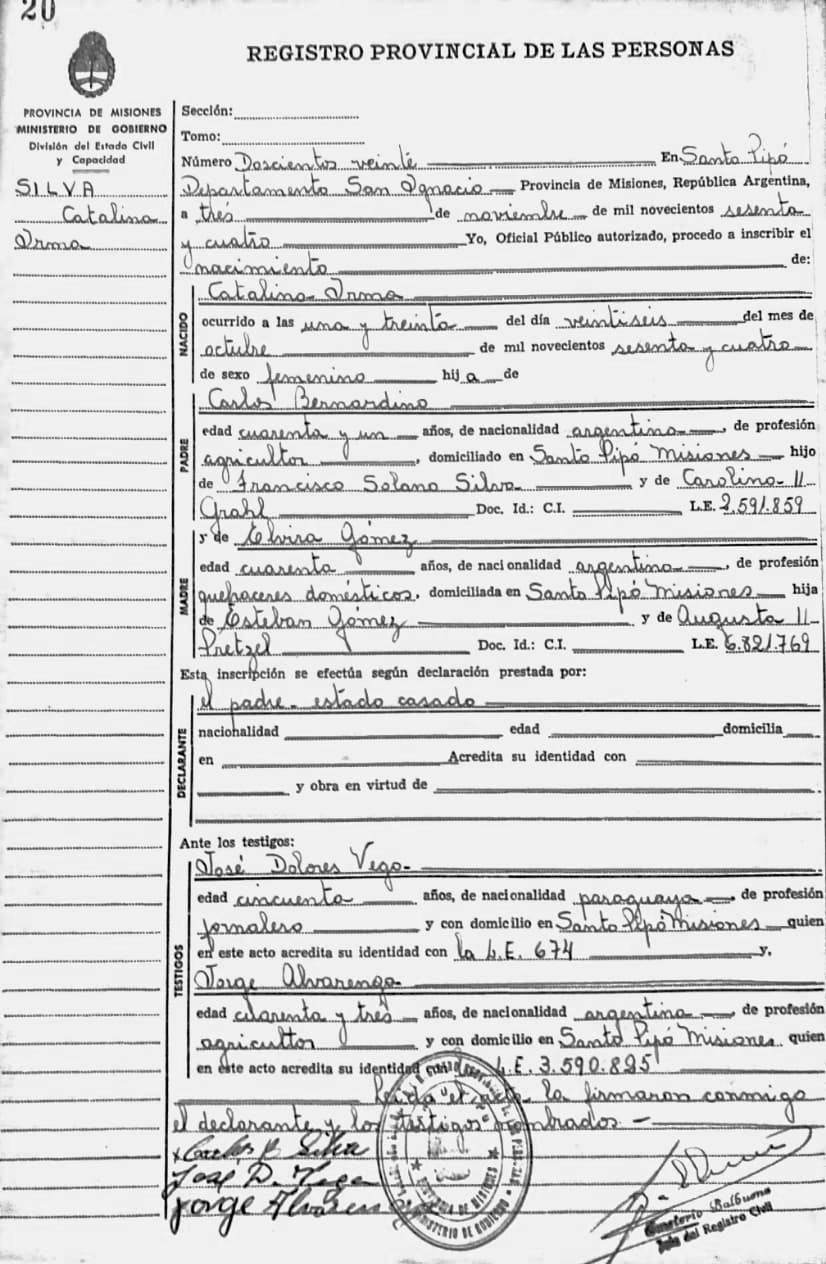 20
REGISTRO PROVINCIAL DE LAS PERSONAS
PROVINCIA DE MISIONES
MINISTERIO DE GOBIERNO
División del Estado Civil
y Capacidad
SILVA
Catalina
Irma
Sección:
Tomo:
Número Doscientos veinte En Santo Pipó
Departamento San Ignacio Provincia de Misiones, República Argentina,
a tres de noviembre de mil novecientos sesenta
y cuatro Yo, Oficial Público autorizado, procedo a inscribir el
nacimiento de:
NACIDO
Catalina Irma
ocurrido a las una y treinta del día veintiseis del mes de
octubre de mil novecientos sesenta y cuatro
de sexo femenino hij a de
PADRE
Carlos Bernardino
edad cuarenta y un años, de nacionalidad argentina, de profesión
agricultor, domiciliado en Santo Pipó Misiones hijo
de Francisco Solano Silva y de Carolina
Grahl Doc. Id.: C.I. L.E. 2.591.859
MADRE
y de Elvira Gómez
edad cuarenta años, de nacionalidad argentina, de profesión
quehaceres domésticos, domiciliada en Santo Pipó Misiones hija
de Esteban Gómez y de Augusta
Pretzel Doc. Id.: C.I. L.E. 6.821.769
Esta inscripción se efectúa según declaración prestada por:
DECLARANTE
el padre - estado casado
nacionalidad edad domicilia
en Acredita su identidad con
y obra en virtud de
Ante los testigos:
TESTIGOS
José Dolores Vega-
edad cincuenta años, de nacionalidad paraguaya, de profesión
jornalero y con domicilio en Santo Pipó Misiones quien
en este acto acredita su identidad con la L.E. 674 y,
Jorge Alvarenga-
edad cuarenta y tres años, de nacionalidad argentina, de profesión
agricultor y con domicilio en Santo Pipó Misiones quien
en este acto acredita su identidad con L.E. 3.590.825
Leída el acta la firmaron conmigo
el declarante y los testigos nombrados -
x Carlos B Silva
José D. Vega
Jorge Alvarenga
PROVINCIA DE MISIONES
MINISTERIO DE GOBIERNO
Balbuena
Jefe del Registro Civil